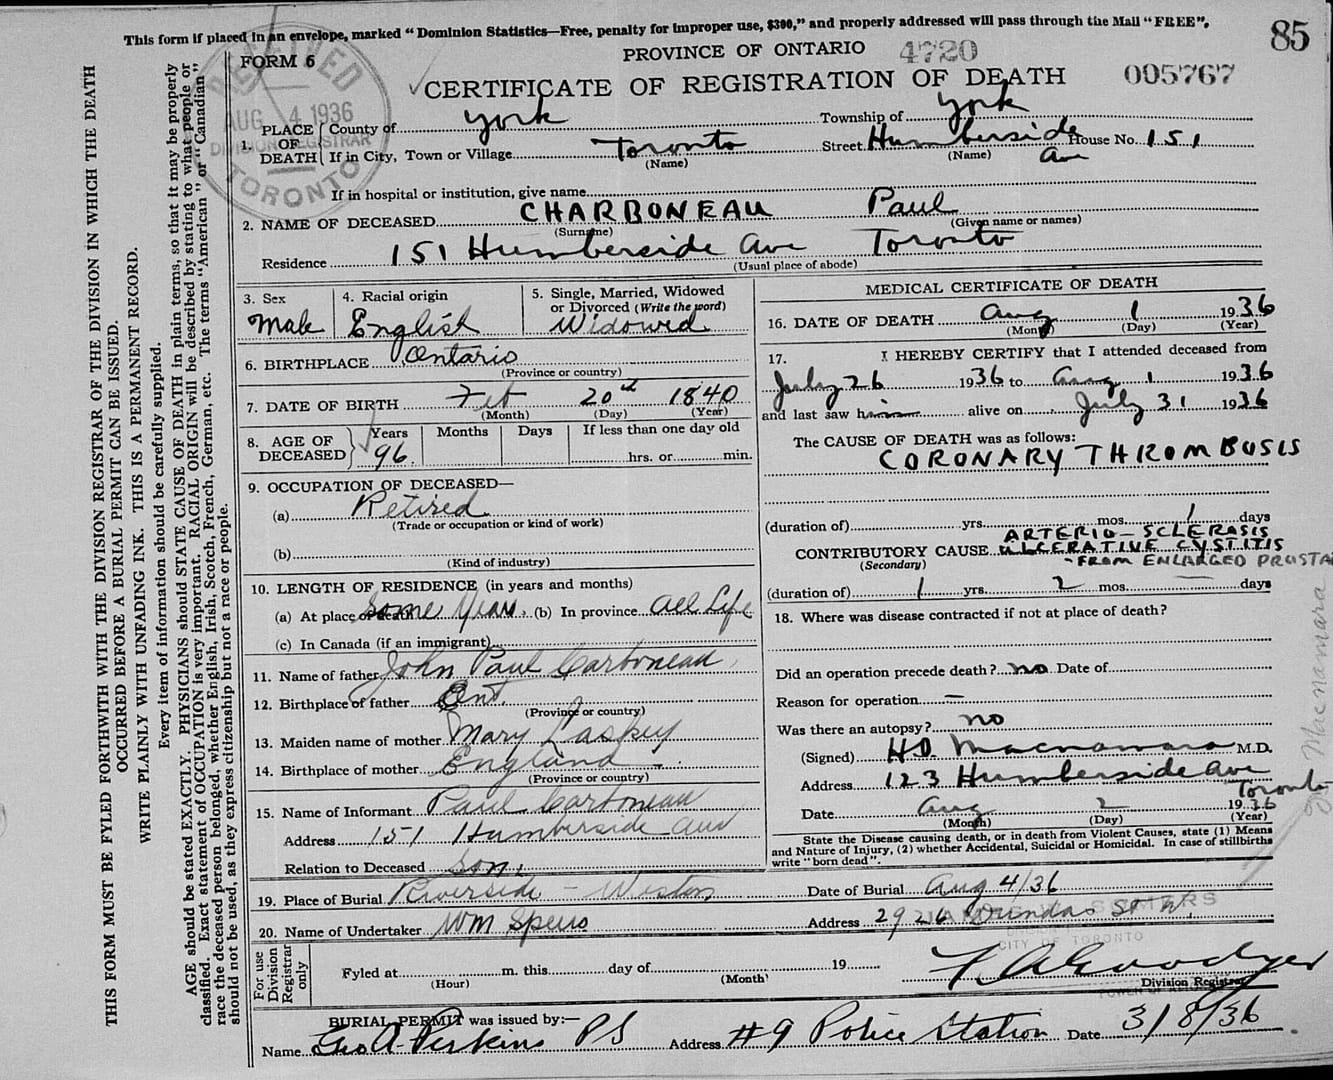 This form if placed in an envelope, marked "Dominion Statistics—Free, penalty for improper use, $300," and properly addressed will pass through the Mail "FREE".
85
FORM 6
PROVINCE OF ONTARIO
4720
CERTIFICATE OF REGISTRATION OF DEATH
005767
RECEIVED
AUG 4 1936
DIVISION REGISTRAR
TORONTO
1. PLACE OF DEATH { County of York Township of York
If in City, Town or Village Toronto Street Humberside Av House No. 151
(Name) (Name)
If in hospital or institution, give name
2. NAME OF DECEASED CHARBONEAU Paul
(Surname) (Given name or names)
Residence 151 Humberside Ave Toronto
(Usual place of abode)
3. Sex
Male
4. Racial origin
English
5. Single, Married, Widowed or Divorced (Write the word)
Widowed
6. BIRTHPLACE Ontario
(Province or country)
7. DATE OF BIRTH Feb 20th 1840
(Month) (Day) (Year)
8. AGE OF DECEASED } Years Months Days If less than one day old
96 hrs. or min.
9. OCCUPATION OF DECEASED—
(a) Retired
(Trade or occupation or kind of work)
(b)
(Kind of industry)
10. LENGTH OF RESIDENCE (in years and months)
(a) At place of death Some Years (b) In province All Life
(c) In Canada (if an immigrant)
11. Name of father John Paul Carboneau
12. Birthplace of father Ont.
(Province or country)
13. Maiden name of mother Mary Laskey
14. Birthplace of mother England
(Province or country)
15. Name of Informant Paul Carboneau
Address 151 Humberside Ave
Relation to Deceased Son.
MEDICAL CERTIFICATE OF DEATH
16. DATE OF DEATH Aug 1 1936
(Month) (Day) (Year)
17. I HEREBY CERTIFY that I attended deceased from
July 26 1936 to Aug 1 1936
and last saw him alive on July 31 1936
The CAUSE OF DEATH was as follows:
CORONARY THROMBOSIS
(duration of) yrs. mos. 1 days
ARTERIO-SCLERASIS
CONTRIBUTORY CAUSE ULCERATIVE CYSTITIS
(Secondary) - FROM ENLARGED PROSTA
(duration of) 1 yrs. 2 mos. days
18. Where was disease contracted if not at place of death?
Did an operation precede death? no Date of
Reason for operation —
Was there an autopsy? no
(Signed) H.D. Macnamara M.D.
Address 123 Humberside Ave
Toronto
Date Aug 2 1936
(Month) (Day) (Year)
State the Disease causing death, or in death from Violent Causes, state (1) Means
and Nature of Injury, (2) whether Accidental, Suicidal or Homicidal. In case of stillbirths
write "born dead".
19. Place of Burial Riverside - Weston Date of Burial Aug 4/36
20. Name of Undertaker Wm Speers Address 2926 Dundas St W.
CITY OF TORONTO
For use Division Registrar only
Fyled at m. this day of 19
(Hour) (Month)
Division Registrar
BURIAL PERMIT was issued by:—
Name Geo A. Perkins PS Address #9 Police Station Date 3/8/36
THIS FORM MUST BE FYLED FORTHWITH WITH THE DIVISION REGISTRAR OF THE DIVISION IN WHICH THE DEATH
OCCURRED BEFORE A BURIAL PERMIT CAN BE ISSUED.
WRITE PLAINLY WITH UNFADING INK. THIS IS A PERMANENT RECORD.
Every item of information should be carefully supplied.
AGE should be stated EXACTLY. PHYSICIANS should STATE CAUSE OF DEATH in plain terms, so that it may be properly
classified. Exact statement of OCCUPATION is very important. RACIAL ORIGIN will be described by stating to what people or
race the deceased person belonged, whether English, Irish, Scotch, French, German, etc. The terms "American" or "Canadian"
should not be used, as they express citizenship but not a race or people.
Macnamara